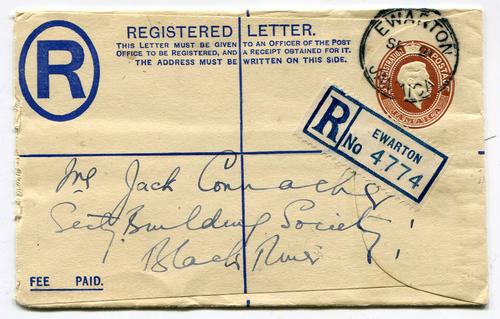 R
REGISTERED LETTER.
THIS LETTER MUST BE GIVEN TO AN OFFICER OF THE POST
OFFICE TO BE REGISTERED, AND A RECEIPT OBTAINED FOR IT.
THE ADDRESS MUST BE WRITTEN ON THIS SIDE.
EWARTON
JAMAICA
R
EWARTON
No 4774
Mr Jack
Secty. Building Society,
Black River
FEE PAID.